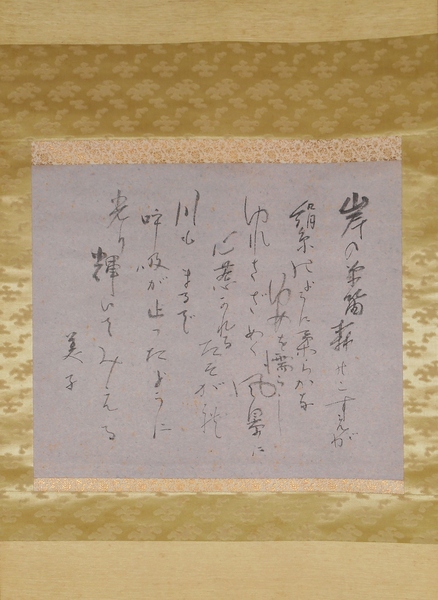 岸の草笛
絹糸のように柔らかな
ゆめを濡らし
ゆれさざめく風景に
心惹かれる たそが
川も まるで
呼吸が止ったように
光り輝いてみえる
美子